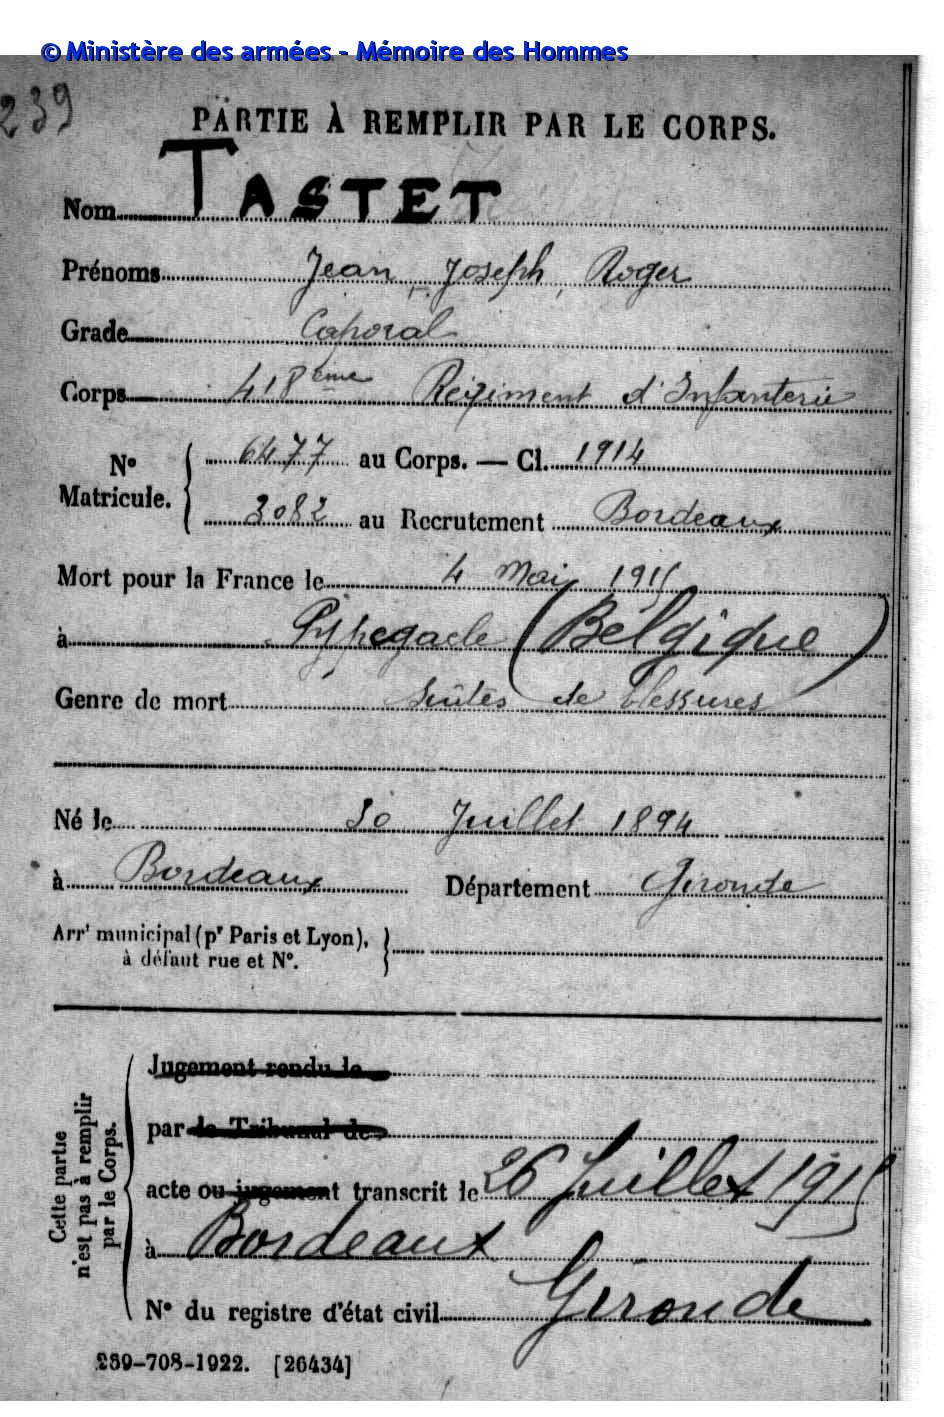 © Ministère des armées - Mémoire des Hommes
239
PARTIE À REMPLIR PAR LE CORPS.
Nom TASTET
Prénoms Jean, Joseph, Roger
Grade Caporal
Corps 418ème Régiment d'Infanterie
N° Matricule. 6477 au Corps. — Cl. 1914
3082 au Recrutement Bordeaux
Mort pour la France le 4 Mai 1915
à Pypegaele (Belgique)
Genre de mort Suites de blessures
Né le 30 Juillet 1894
à Bordeaux Département Gironde
Arrt municipal (pr Paris et Lyon),
à défaut rue et N°.
Cette partie
n'est pas à remplir
par le Corps.
Jugement rendu le
par le Tribunal de
acte ou jugement transcrit le 26 Juillet 1915
à Bordeaux
N° du registre d'état civil Gironde
239-708-1922. [26434]